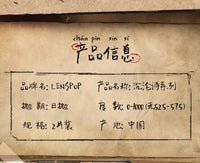 chǎn pǐn xìn xī
产品信息
品牌名: LENSPOP 产品名称: 沉沦诗系列
抛期: 日抛 度数: 0-1000(无525-575)
规格: 2片装 产地: 中国